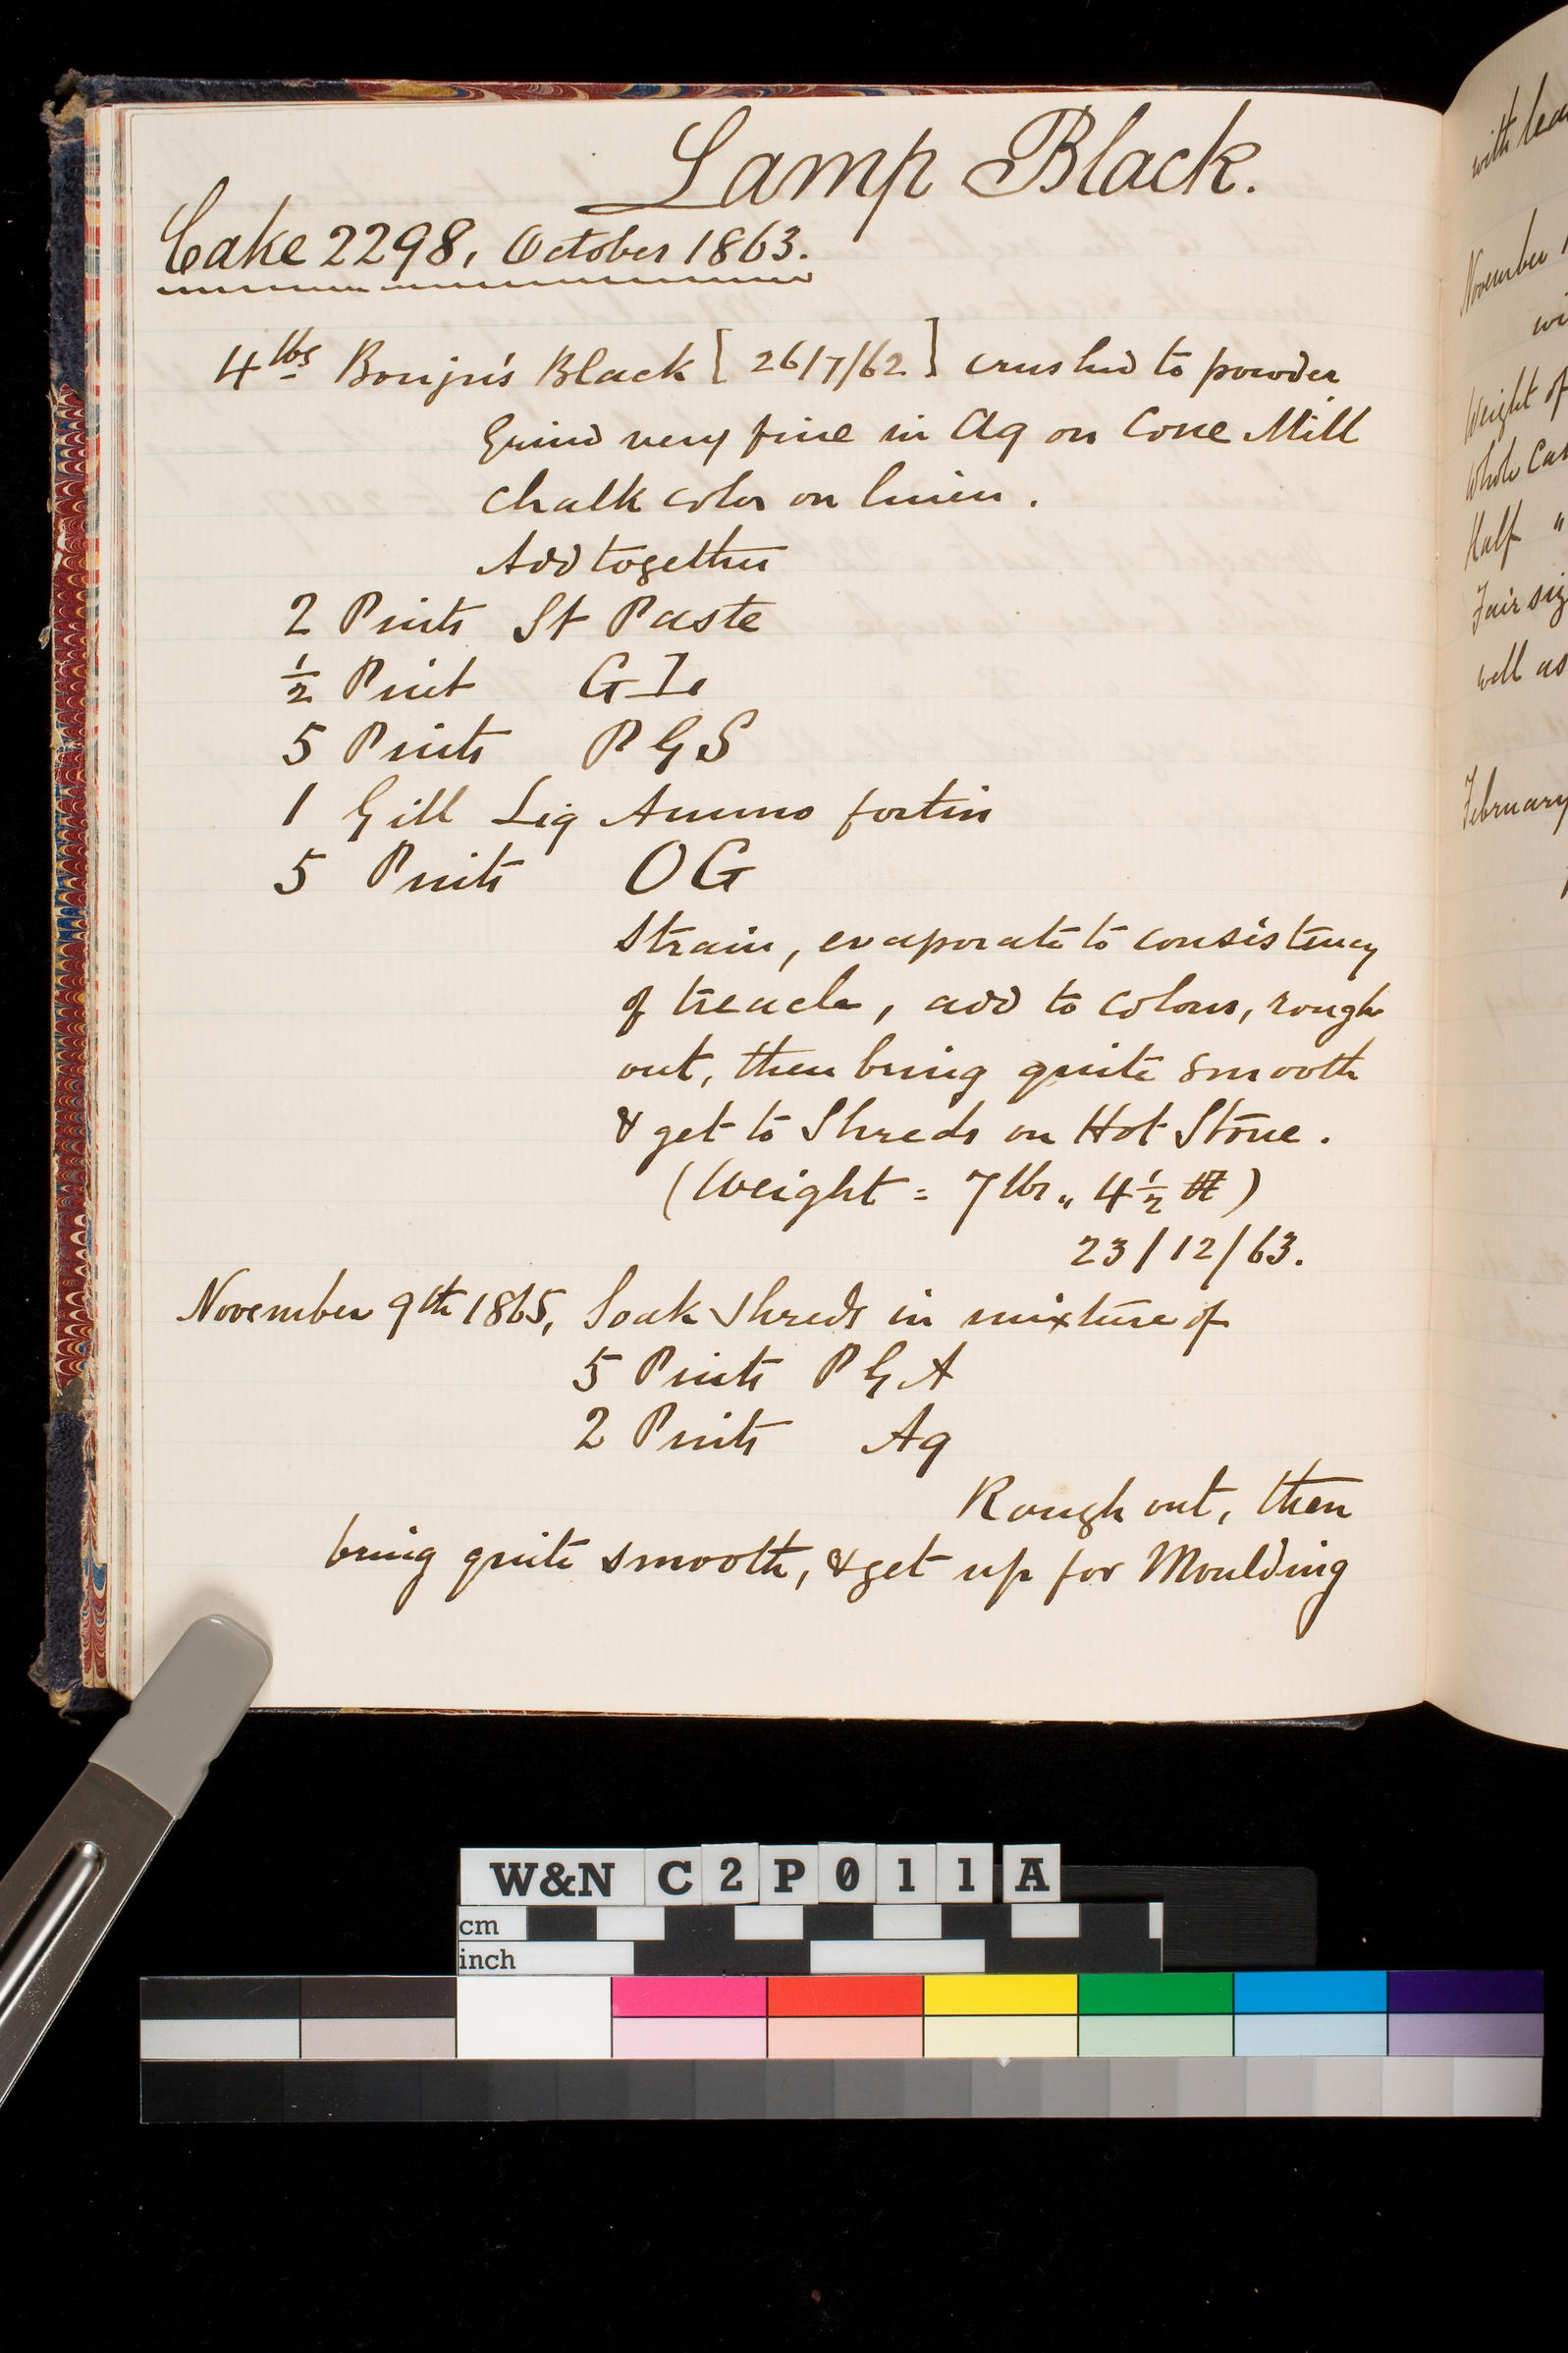 Lamp Black.
Cake 2298, October 1863.
4 lbs Bonjn's Black [26/7/62] crushed to powder
Grind very fine in Aq on Cone Mill
Chalk color on linen.
Add together
2 Pints St Paste
½ Pint G I.
5 Pints P G S
1 Gill Liq Ammo fortis
5 Pints O G
Strain, evaporate to consistency
of treacle, add to colour, rough
out, then bring quite smooth
& get to Shreds on Hot Stone.
(Weight = 7 lbs " 4½
23/12/63.
November 9th 1865, Soak Shreds in mixture of
5 Pints P G A
2 Pints Aq
Rough out, then
bring quite smooth, & get up for Moulding
with
November
Weight of
Whole
Half "
Fair
well as
February
W&N C2P011A
cm
inch